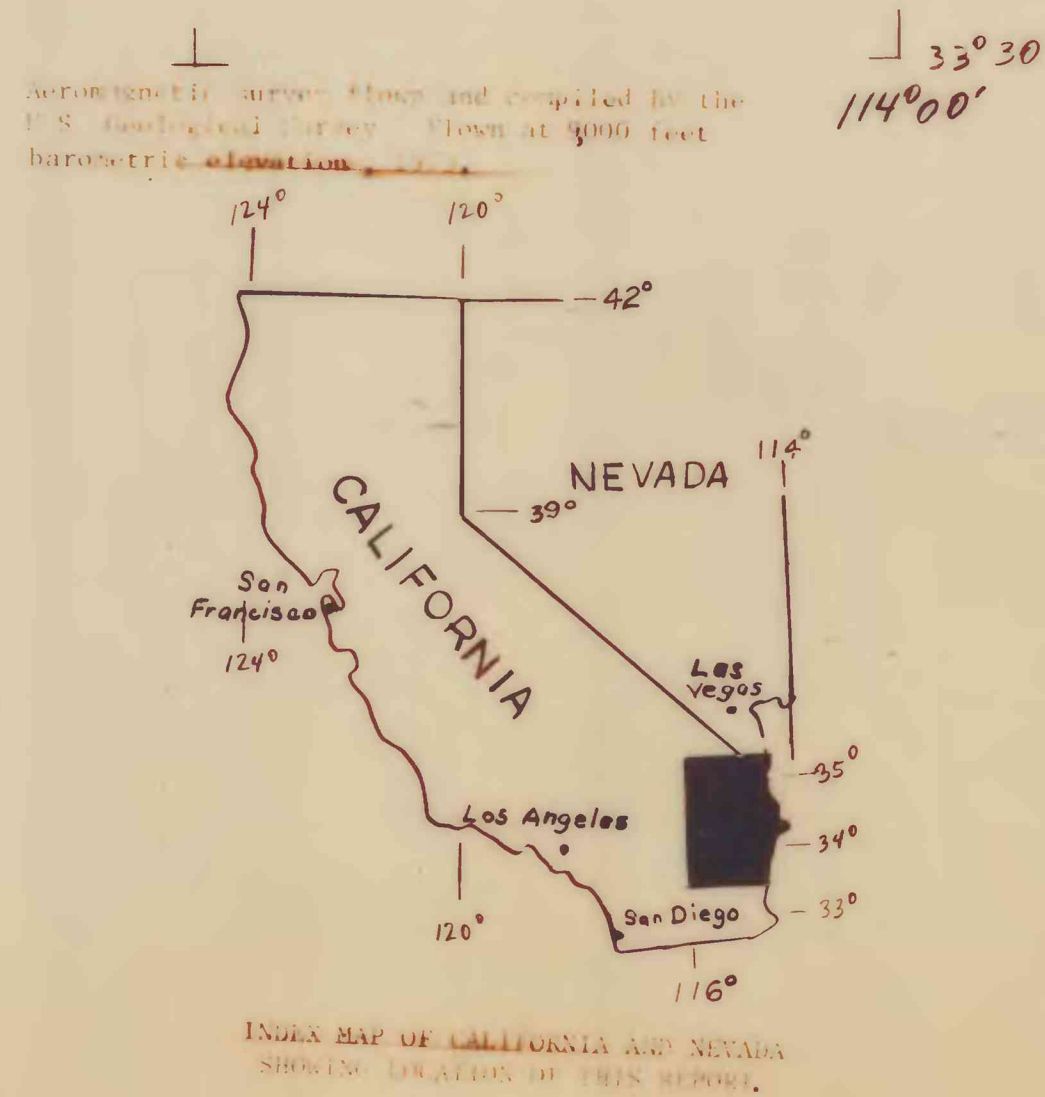 33° 30
114° 00'
Aeromagnetic survey flown and compiled by the
U.S. Geological Survey Flown at 9000 feet
barometric elevation
124°
120°
42°
114°
NEVADA
CALIFORNIA
39°
San
Francisco
124°
Las
vegas
35°
Los Angeles
34°
120°
San Diego
33°
116°
INDEX MAP OF CALIFORNIA AND NEVADA
SHOWING LOCATION OF THIS REPORT.